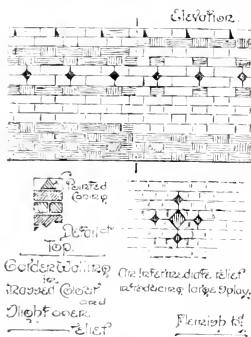 Elevation.
Pointed
Coping
Detail of
Top.
Garden Walling
in
Massed Colour
and
Slight over
Relief
An Intermediate relief
introducing large splay.
Flemish